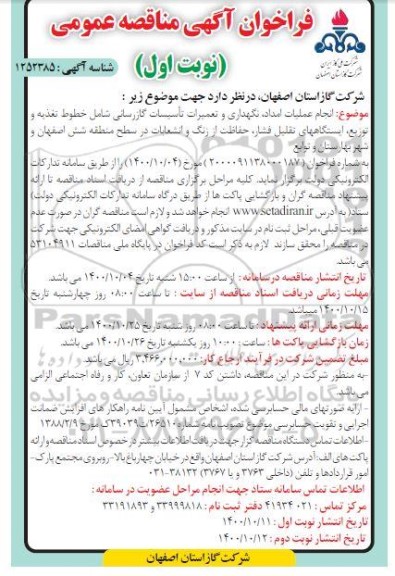 فراخوان آگهی مناقصه عمومی
(نوبت اول)
شناسه آگهی : ۱۲۵۲۳۸۵
شرکت ملی گاز ایران
شرکت گاز استان اصفهان
شرکت گاز استان اصفهان، درنظر دارد جهت موضوع زیر :
موضوع: انجام عملیات امداد، نگهداری و تعمیرات تأسیسات گازرسانی شامل خطوط تغذیه و
توزیع، ایستگاههای تقلیل فشار، حفاظت از زنگ و انشعابات در سطح منطقه شش اصفهان و
شهر بهارستان و توابع
به شماره فراخوان (۲۰۰۰۰۹۱۱۳۸۰۰۰۱۸۷) مورخ (۱۴۰۰/۱۰/۰۴) را از طریق سامانه تدارکات
الکترونیکی دولت برگزار نماید. کلیه مراحل برگزاری مناقصه از دریافت اسناد مناقصه تا ارائه
پیشنهاد مناقصه گران و بازگشایی پاکت ها از طریق درگاه سامانه تدارکات الکترونیکی دولت)
ستاد( به آدرس www.setadiran.ir انجام خواهد شد و لازم است مناقصه گران در صورت عدم
عضویت قبلی، مراحل ثبت نام در سایت مذکور و دریافت گواهی امضای الکترونیکی جهت شرکت
در مناقصه را محقق سازند لازم به ذکر است کد فراخوان در پایگاه ملی مناقصات ۵۳۱۰۴۹۱۱
می باشد.
تاریخ انتشار مناقصه درسامانه : از ساعت ۱۵:۰۰ شنبه تاریخ ۱۴۰۰/۱۰/۰۴ می باشد.
مهلت زمانی دریافت اسناد مناقصه از سایت : تا ساعت ۰۸:۰۰ روز چهارشنبه تاریخ
۱۴۰۰/۱۰/۱۵ میباشد.
مهلت زمانی ارائه پیشنهاد : تا ساعت ۰۸:۰۰ روز شنبه تاریخ ۱۴۰۰/۱۰/۲۵ می باشد.
زمان بازگشایی پاکت ها : ساعت ۱۰:۰۰ روز یکشنبه تاریخ ۱۴۰۰/۱۰/۲۶ می باشد.
مبلغ تضمین شرکت در فرآیند ارجاع کار: ۳,۴۶۶,۰۰۰,۰۰۰ ریال می باشد.
-به منظور شرکت در این مناقصه، داشتن کد ۷ از سازمان تعاون، کار و رفاه اجتماعی الزامی
می باشد.
- ارایه صورتهای مالی حسابرسی شده، اشخاص مشمول آیین نامه راهکار های افزایش ضمانت
اجرایی و تقویت حسابرسی موضوع تصویب نامه
-اطلاعات تماس دستگاه مناقصه گزار جهت دریافت اطلاعات بیشتر در خصوص اسناد مناقصه و ارائه
پاکت های الف: آدرس شرکت گاز استان اصفهان واقع در خیابان چهارباغ بالا-روبروی مجتمع پارک-
امور قراردادها و تلفن (داخلی ۳۷۶۳ و یا ۳۷۶۷) ۳۸۱۳۲-۰۳۱
اطلاعات تماس سامانه ستاد جهت انجام مراحل عضویت در سامانه :
مرکز تماس : ۰۲۱ ۴۱۹۳۴ دفتر ثبت نام : ۳۳۹۹۹۸۱۸ و ۳۳۱۹۱۸۹۳
تاریخ انتشار نوبت اول : ۱۴۰۰/۱۰/۱۱
تاریخ انتشار نوبت دوم : ۱۴۰۰/۱۰/۱۲
شرکت گاز استان اصفهان